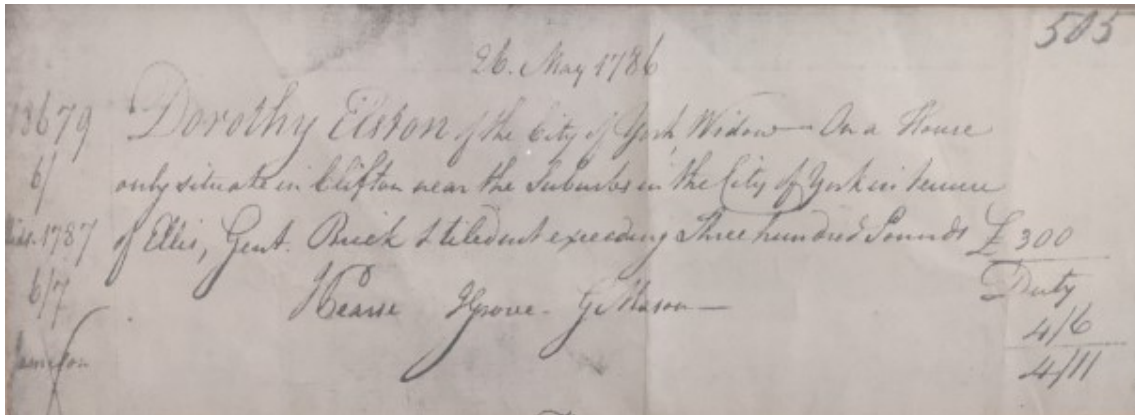 505
26. May 1786
Dorothy Elston of the City of York, Widow — On a House
6/ only situate in Clifton near the Suburbs in the City of York in tenure
1787 of Ellis, Gent. Brick & tiled not exceeding Three hundred Pounds £ 300
6/7 Hearse Grove - G. Mason — Duty
4/6
Jamison 4/11